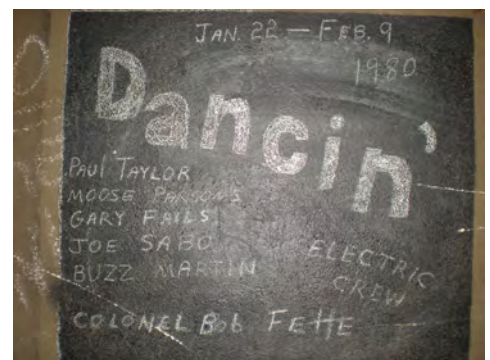 JAN. 22 — FEB. 9
1980
Dancin'
PAUL TAYLOR
MOOSE PARSONS
GARY FAILS
JOE SABO
BUZZ MARTIN
ELECTRIC
CREW
COLONEL BOB FETTE